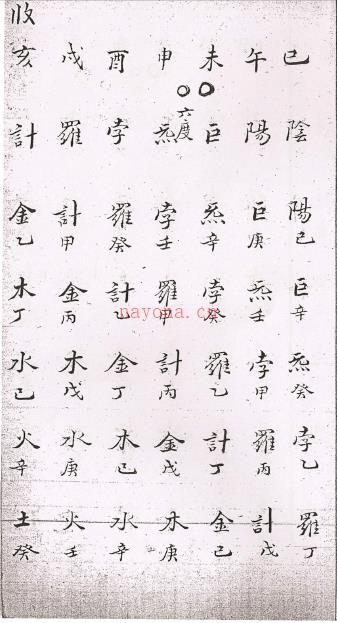 巳陰陽己巨辛炁癸孛乙羅丁
午陽巨庚炁壬孛甲羅丙計戊
未○巨炁辛孛癸羅乙計丁金己
申○六度炁孛壬羅甲計丙金戊木庚
酉孛羅癸計乙金丁木己水辛
戌羅計甲金丙木戊水庚火壬
收亥計金乙木丁水己火辛土癸
nayona.cn